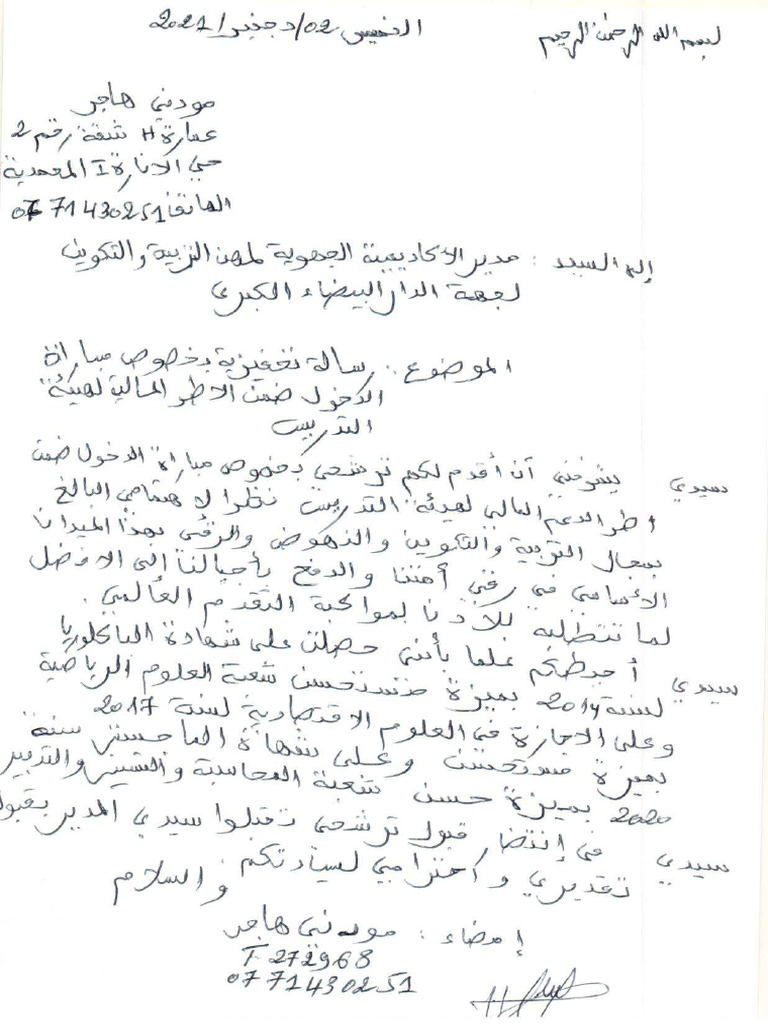 بسم الله الرحمن الرحيم
الخميس 02/دجنبر/2021
مودني هاجر
عمارة H شقة رقم 2
حي الانارة I المحمدية
الهاتف 0771430251
إلى السيد : مدير الأكاديمية الجهوية لمهن التربية والتكوين
لجهة الدار البيضاء الكبرى
الموضوع : رسالة تحفيزية بخصوص مباراة
الدخول ضمن الاطر المالية لهيئة
التدريس
سيدي يشرفني أن أقدم لكم ترشحي بخصوص مباراة الدخول ضمن
اطر الدعم المالي لهيئة التدريس نظرا لإهتمامي البالغ
بمجال التربية والتكوين والنهوض والرقي بهذا الميدان
الأساسي في رقي أمتنا والدفع بأجيالنا إلى الافضل
لما تتطلبه بلادنا لمواكبة التقدم العالمي .
سيدي أحيطكم علما بأنني حصلت على شهادة الباكلوريا
لسنة 2014 بميزة مستحسن شعبة العلوم الرياضية
وعلى الاجازة في العلوم الاقتصادية لسنة 2017
بميزة مستحسن وعلى شهاة الماجستر سنة
2020 بميزة حسن شعبة المحاسبة والتسيير والتدبير
سيدي في إنتضار قبول ترشحي تقبلوا سيدي المدير بقبول
تقديري و احترامي لسيادتكم . والسلام
إمضاء : مودني هاجر
T 272968
0771430251